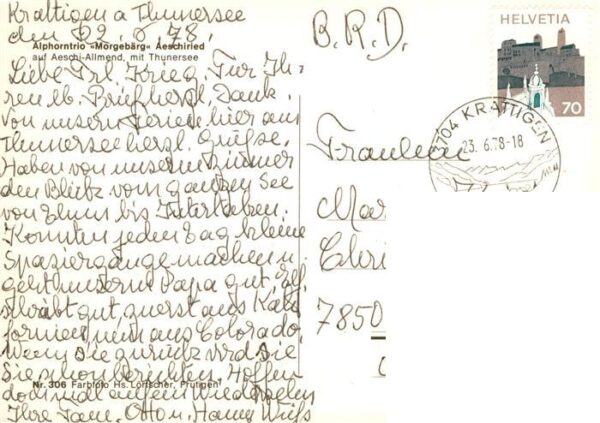 Krattigen a Thunersee
den 22. 6. 78.
Alphorntrio «Morgebärg» Aeschiried
auf Aeschi-Allmend, mit Thunersee
Liebe Frl. Krieg. Für Ih-
ren lb. Brief herzl. Dank.
Von unsern Ferien hier am
Thunersee herzl. Grüße.
Haben von unserm Zimmer
den Blick vom ganzen See
von Thun bis Interlaken.
Konnten jeden Tag kleine
Spaziergänge machen u.
geht unserm Papa gut,
schreibt gut zuerst aus Kali
fornien, nun aus Colorado.
Wenn Sie zurück wird Sie
Sie schon berichten. Hoffen
doch mal auf ein Wiedersehn
Nr. 306 Farbfoto Hs. Lörtscher, Frutigen
Ihre Fam. Otto u. Hanny
B.R.D.
HELVETIA
70
3704 KRATTIGEN
23.6.78-18
Fräulein
Mar
Chri
7850